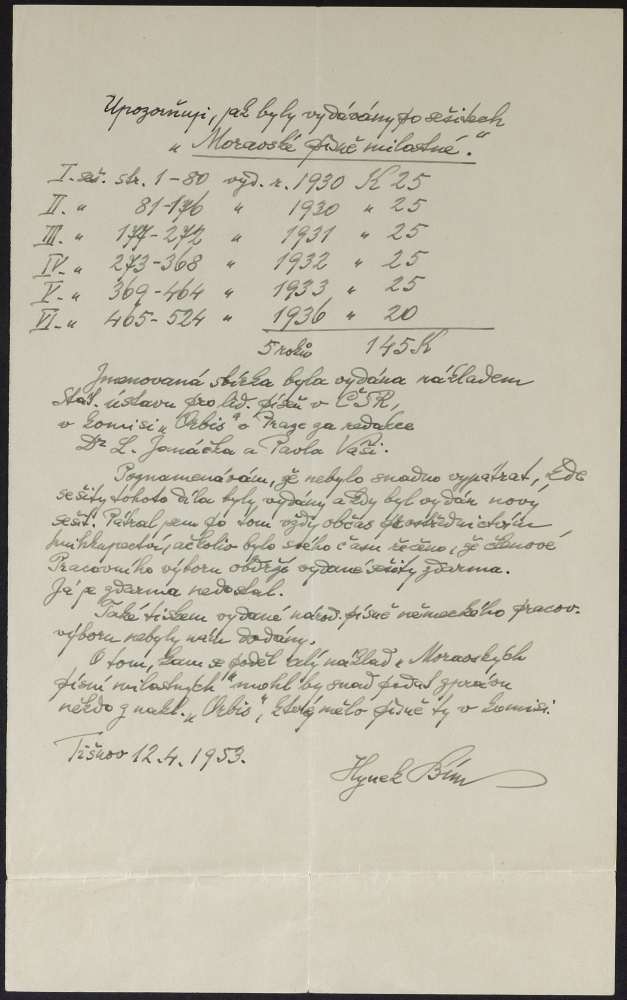 Upozorňuji, jak byly vydávány po sešitech
„Moravské písně milostné."
I. seš. str. 1-80 vyd. r. 1930 K 25
II. " 81-176 " 1930 " 25
III. " 177-272 " 1931 " 25
IV. " 273-368 " 1932 " 25
V. " 369-464 " 1933 " 25
VI. " 465-524 " 1936 " 20
5 roků 145 K
Jmenovaná sbírka byla vydána nákladem
Stát. ústavu pro lid. píseň v ČSR,
v komisi „Orbis" v Praze za redakce
Dr L. Janáčka a Pavla Váši.
Poznamenávám, že nebylo snadno vypátrat, kde
sešity tohoto díla byly vydány a kdy byl vydán nový
sešit. Pátral jsem po tom vždy občas prostřednictvím
knihkupectví, ačkoliv bylo svého času řečeno, že členové
Pracovního výboru obdrží vydané sešity zdarma.
Já je zdarma nedostal.
Také tiskem vydané národ. písně německého pracov.
výboru nebyly nám dodány.
O tom, kam se poděl celý náklad „Moravských
písní milostných" mohl by snad podat zprávu
někdo z nakl. „Orbis", který mělo písně ty v komisi.
Tišnov 12.4.1953.
Hynek Bím